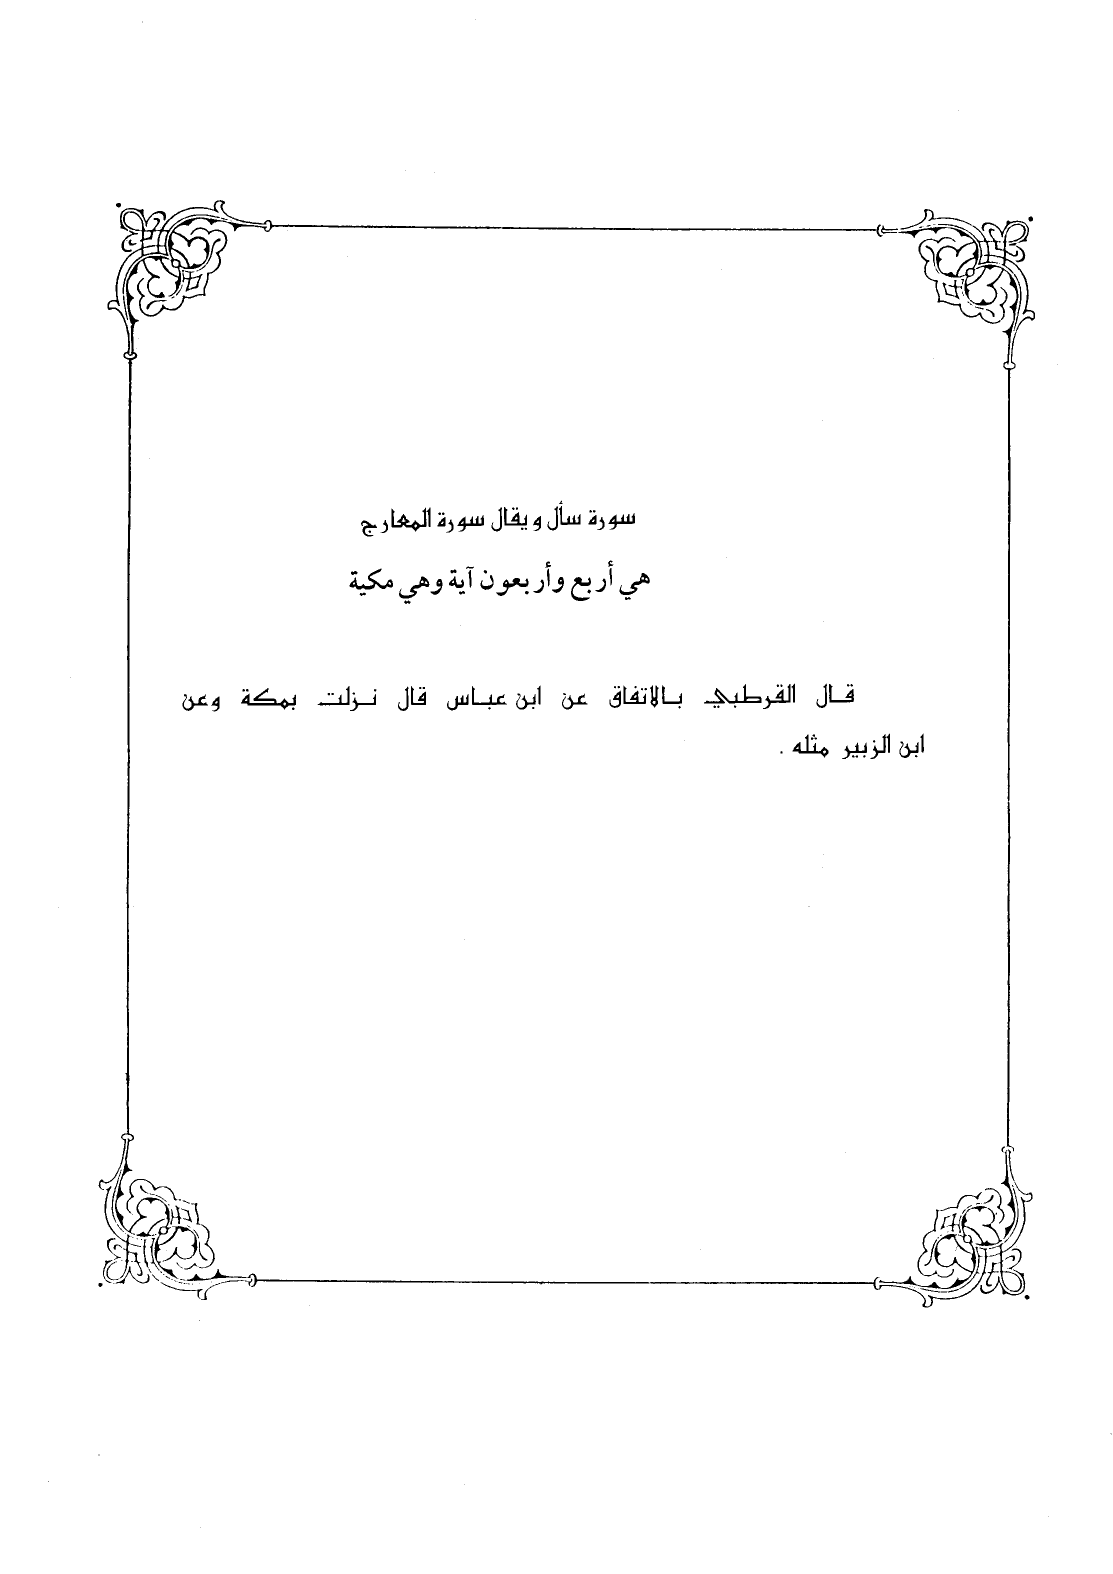 سورة سأل ويقال سورة المعارج
هي أربع وأربعون آية وهي مكية
قال القرطبي بالاتفاق عن ابن عباس قال نزلت بمكة وعن
ابن الزبير مثله .